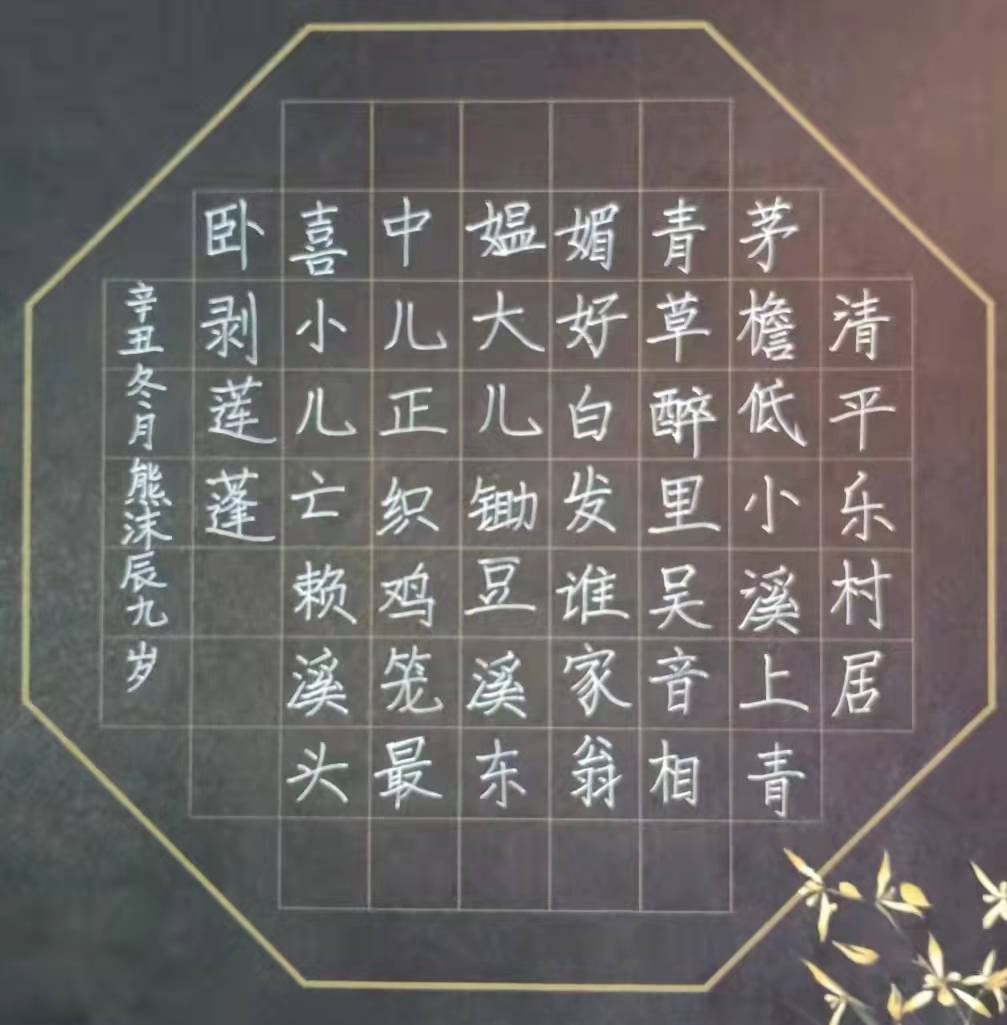 清平乐村居
茅檐低小溪上青
青草醉里吴音相
媚好白发谁家翁
媪大儿锄豆溪东
中儿正织鸡笼最
喜小儿亡赖溪头
卧剥莲蓬
辛丑冬月熊沫辰九岁